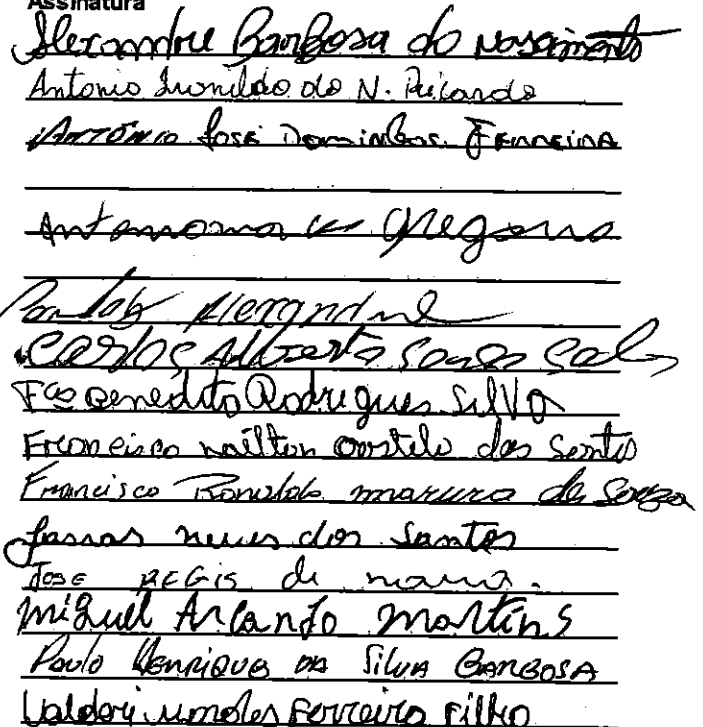 Assinatura
Alexandre Barbosa do Nascimento
Antonio Ivonildo do N. Ricardo
Antônio José Domingos Ferreira
Gregorio
Alexandre
Carlos Alberto Souza
Fco Benedito Rodrigues Silva
Francisco nailton dos Santos
Francisco Ronaldo de Souza
neves dos Santos
Jose REGis de
miguel Arcanjo martins
Paulo Henrique da Silva BARBOSA
Ferreira Filho